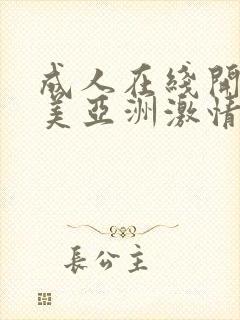 成人在綫開
美亞洲激情
長公主